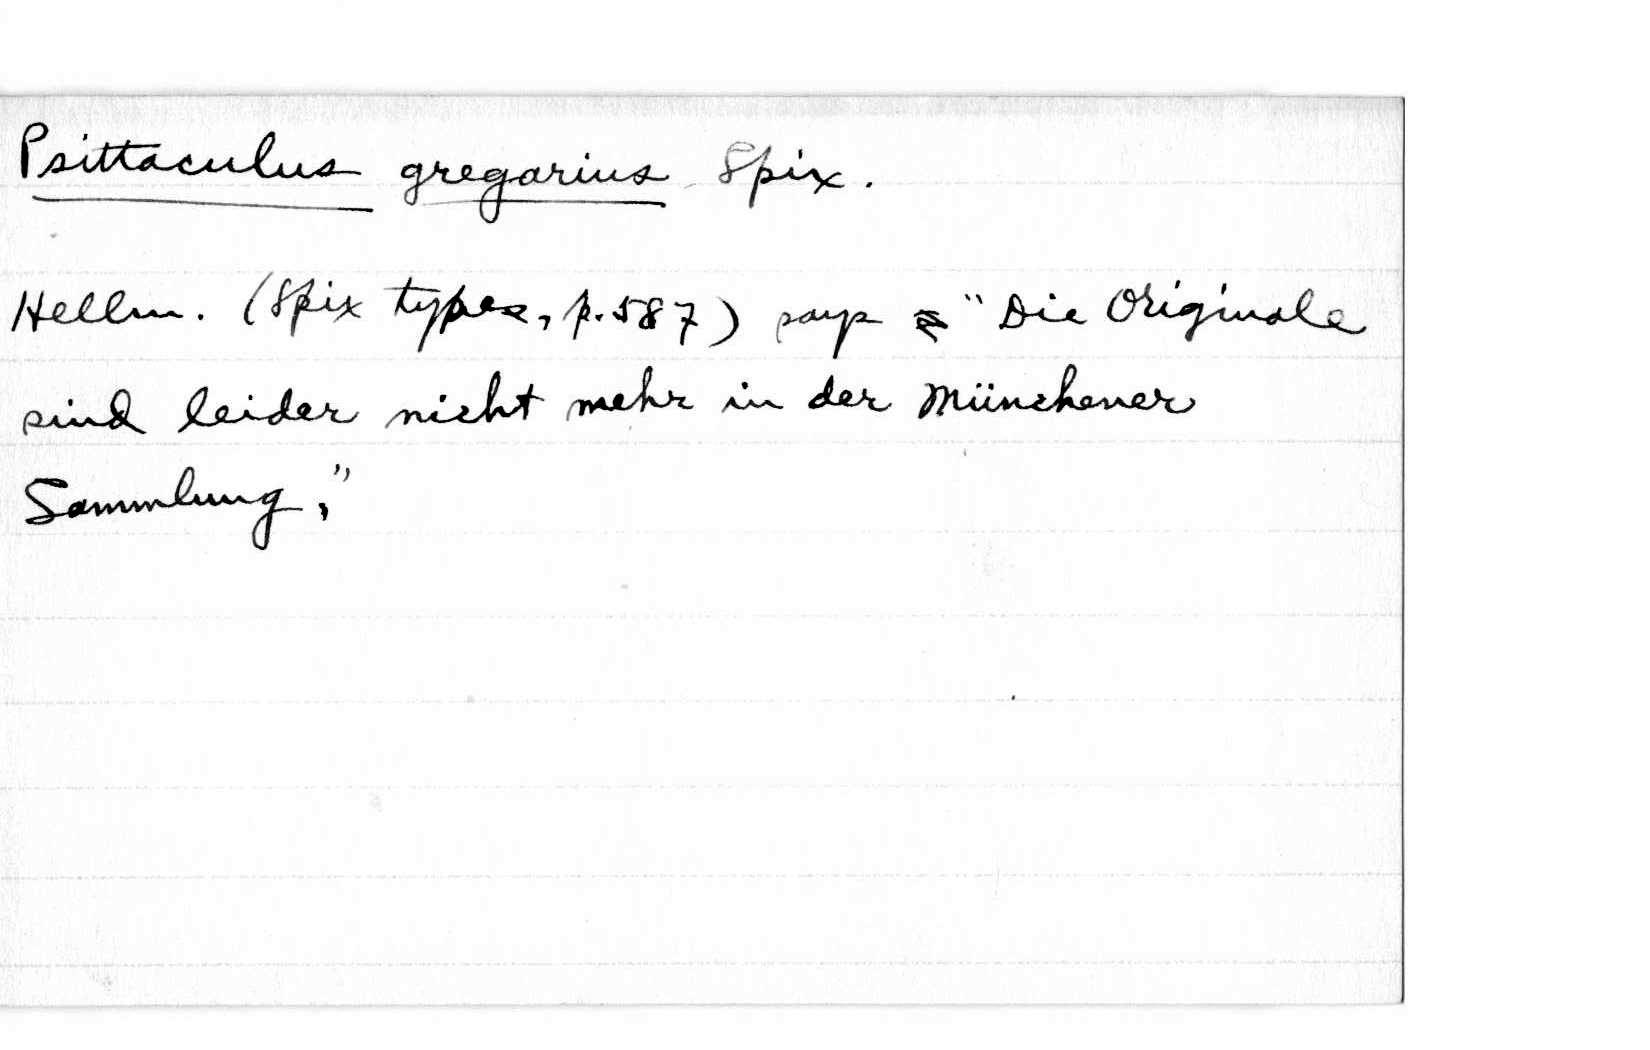 Psittaculus gregarius Spix.
Hellm. (Spix types, p. 587) says "Die Originale
sind leider nicht mehr in der Münchener
Sammlung,"